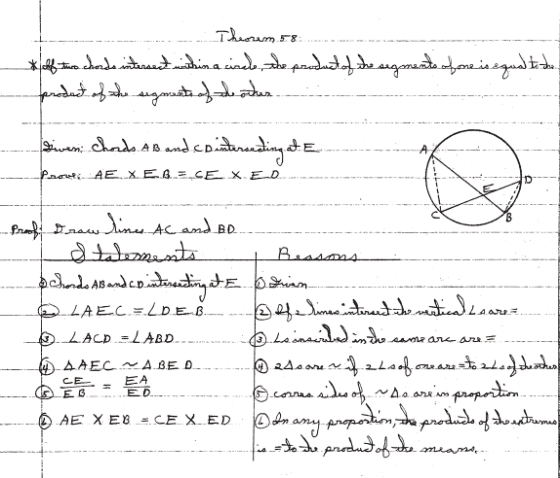 Theorem 58
* If two chords intersect within a circle, the product of the segments of one is equal to the
product of the segments of the other.
Given: Chords AB and CD intersecting at E
Prove: AE X EB = CE X ED
A
D
E
C
B
Proof: Draw lines AC and BD
Statements
Reasons
① Chords AB and CD intersecting at E
① Given
② ∠AEC = ∠DEB
② If 2 lines intersect the vertical ∠s are =
③ ∠ACD = ∠ABD
③ ∠s inscribed in the same arc are =
④ △AEC ~ △BED
④ 2 △s are ~ if 2 ∠s of one are = to 2 ∠s of the other
⑤ CE/EB = EA/ED
⑤ corres sides of ~ △s are in proportion
⑥ AE X EB = CE X ED
⑥ In any proportion, the products of the extremes
is = to the product of the means.